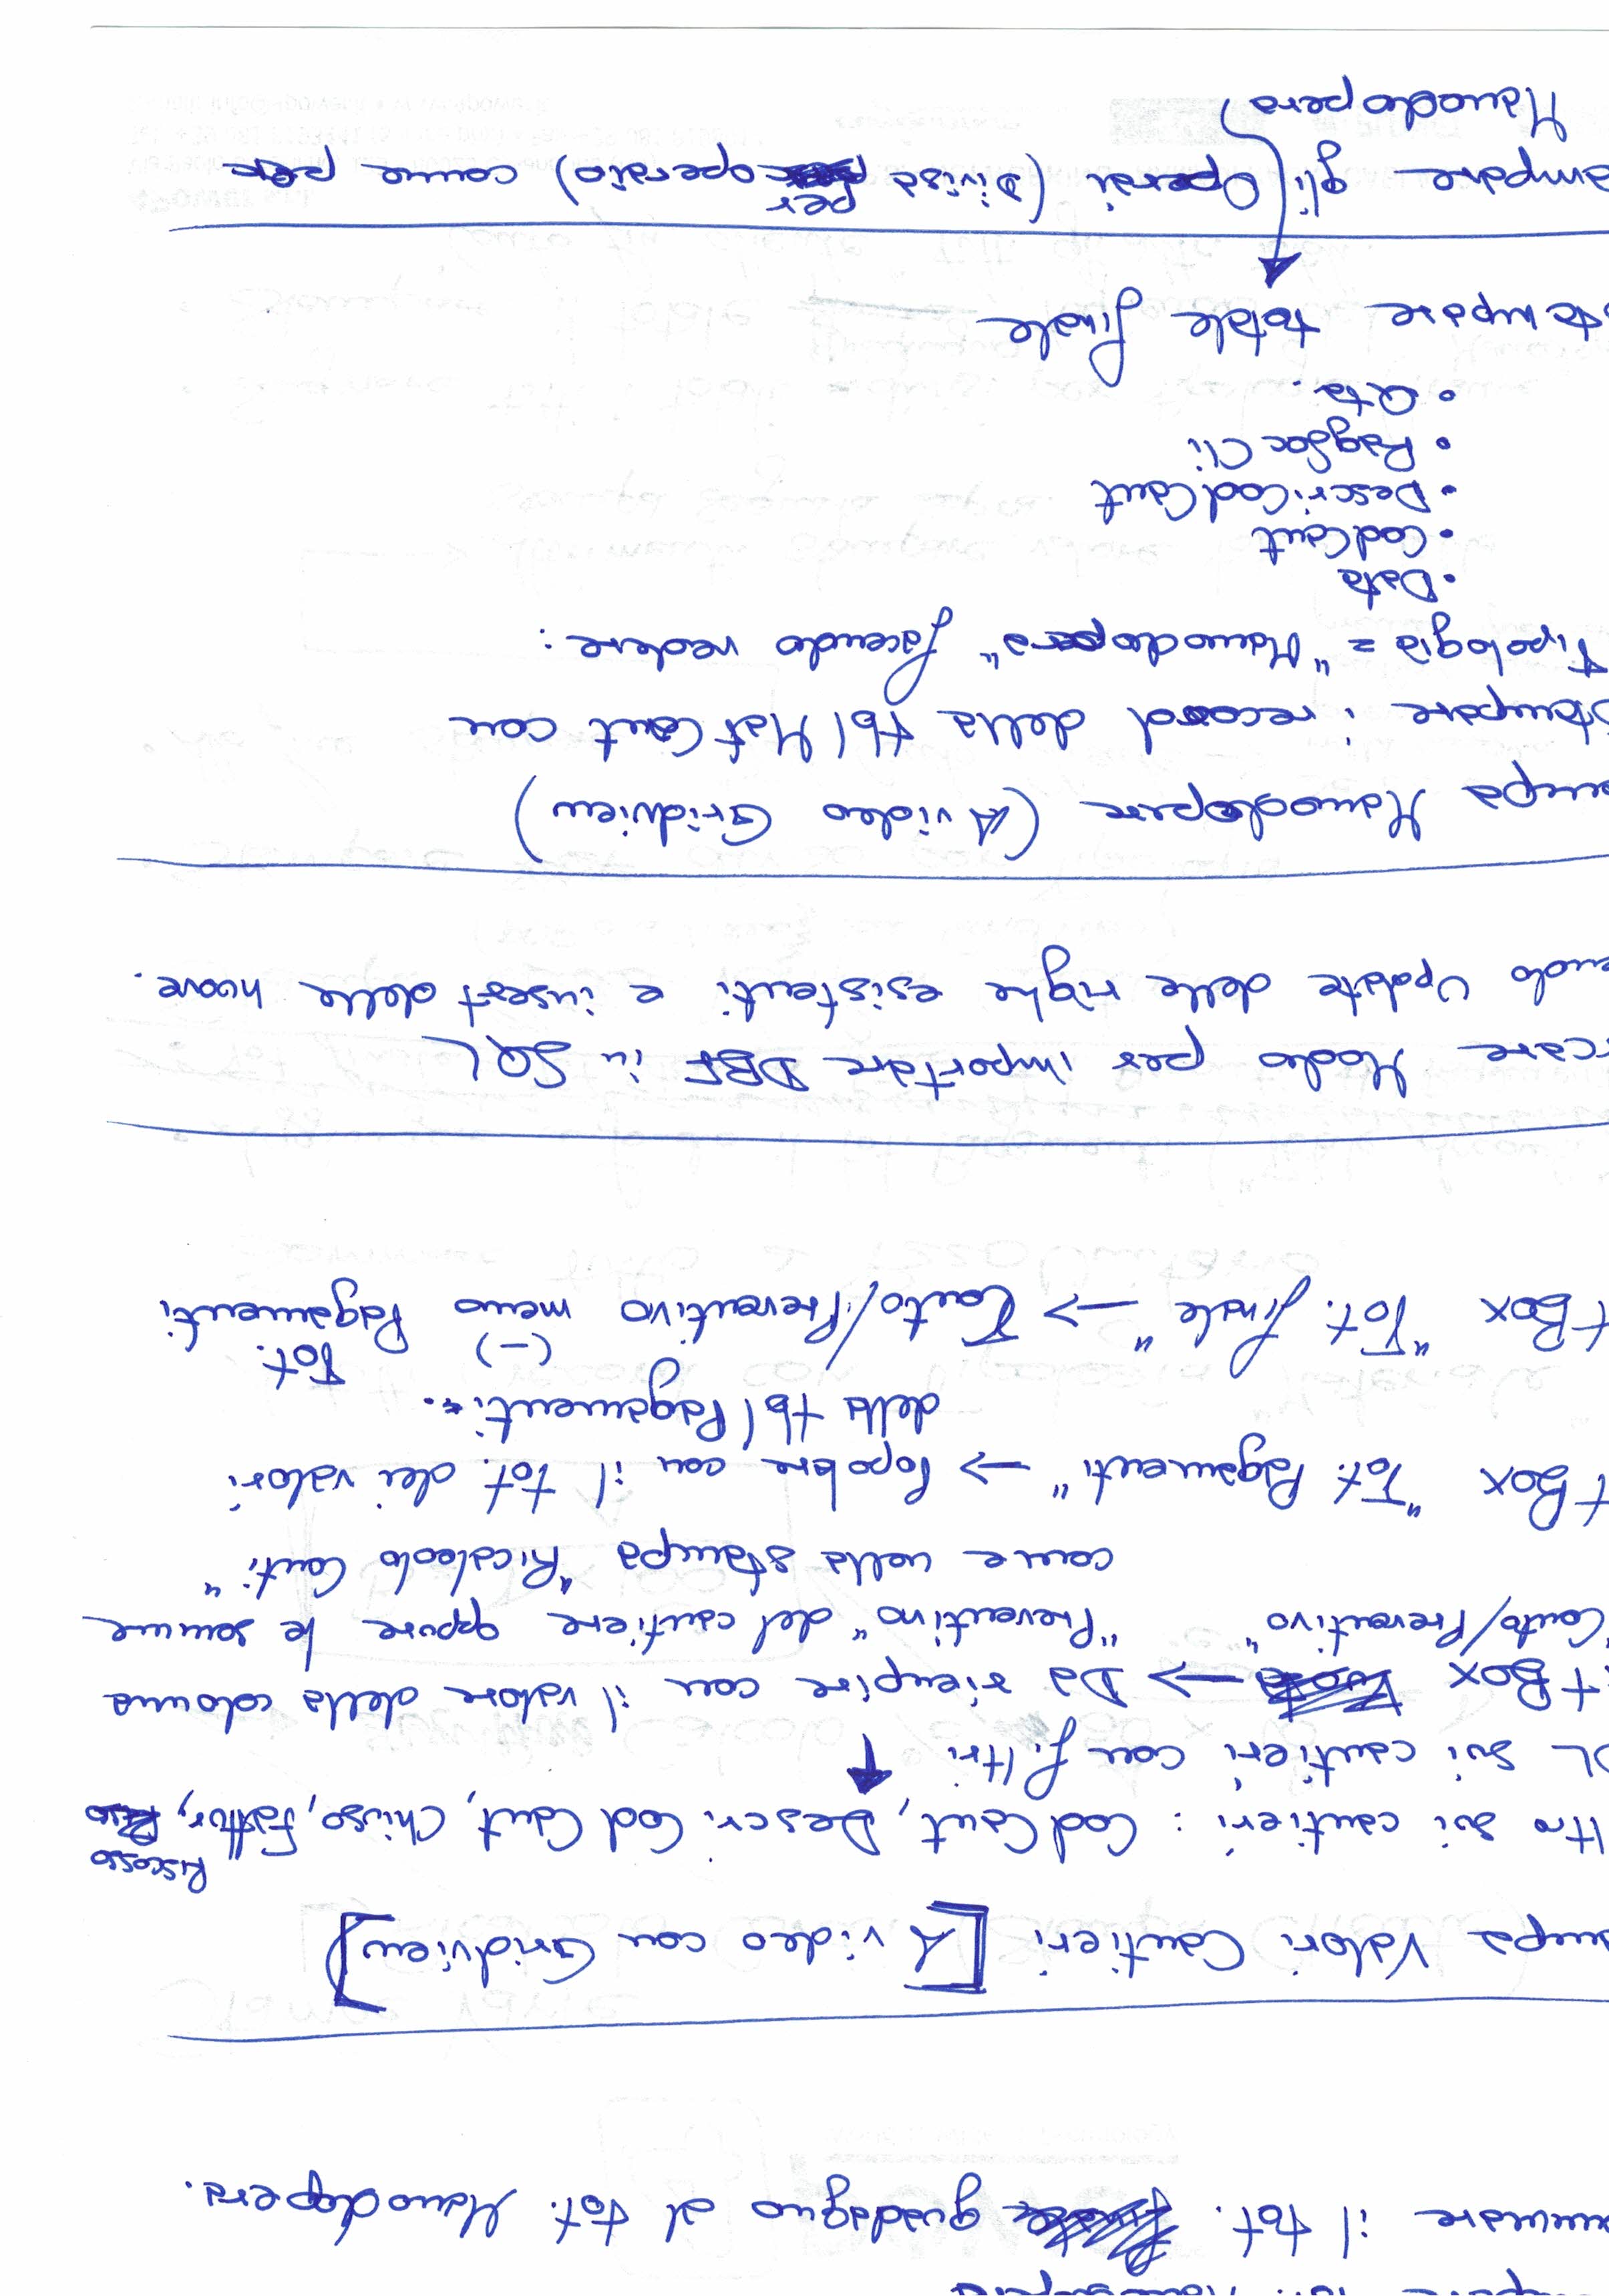 ommare il tot. guadagno al tot. Manodopera.
ampa Valori Cantieri [A video con Gridview]
ltro sui cantieri : CodCant, DescriCodCant, Chiuso, Fattur, Riscosso
DL sui cantieri con filtri ↑
t Box → Da riempire con il valore della colonna
"Conto/Preventivo" "Preventivo" del cantiere oppure le somme
come nella stampa "Ricalcolo Conti"
t Box "Tot. Pagamenti" → Popolare con il tot. dei valori
della tbl Pagamenti.
t Box "Tot. finale" → Conto/Preventivo meno (-) Tot. Pagamenti
rcare Modo per importare DBF in SQL
endo Update delle righe esistenti e insert delle nuove.
ampa Manodopere (A video Gridview)
Stampare i record della tbl MatCant con
Tipologia = "Manodopera" facendo vedere :
• Data
• CodCant
• DescriCodCant
• RagSocCli
• Qta.
stampare totale finale
ampare gli Operai (Divisa per operaio) come per
Manodopera